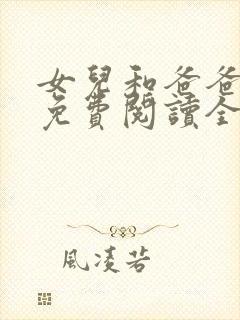 女兒和爸爸
免費閱讀全
風凌若